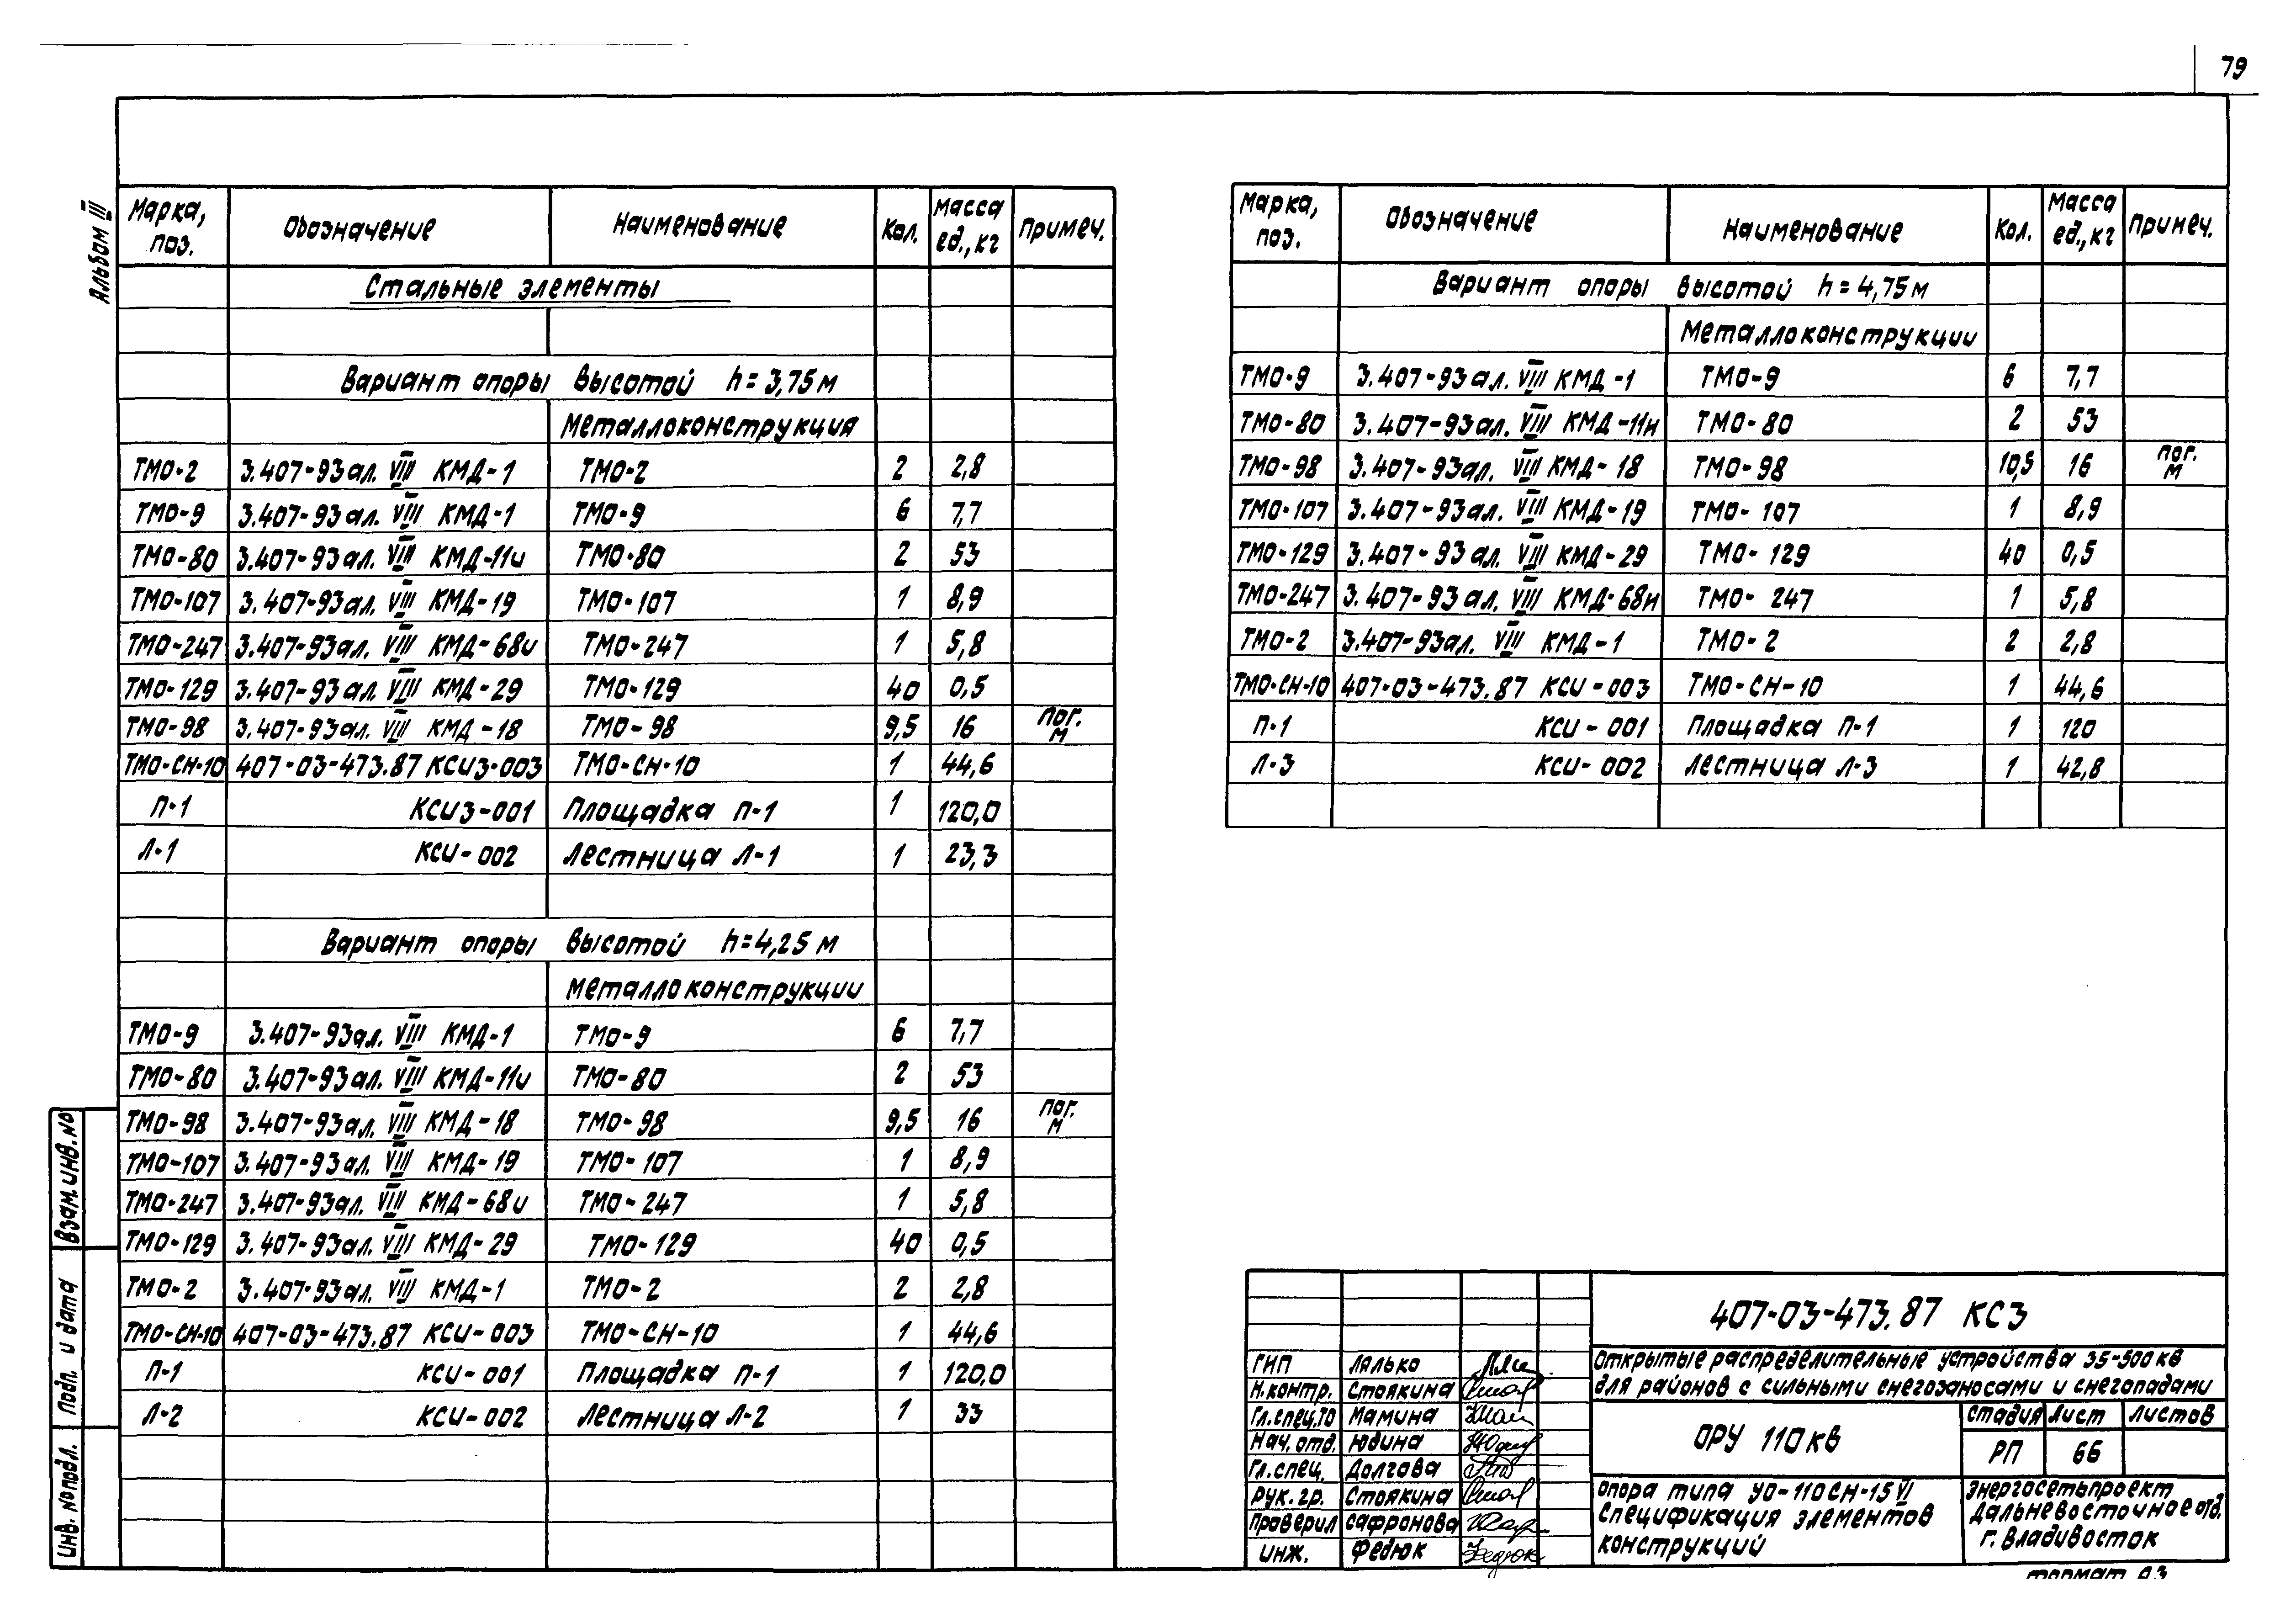 79
Альбом III
Марка, поз. Обозначение Наименование Кол. Масса ед., кг Примеч.
Стальные элементы
Вариант опоры высотой h=3,75м
Металлоконструкция
ТМО-2 3.407-93ал. VIII КМД-1 ТМО-2 2 2,8
ТМО-9 3.407-93ал. VIII КМД-1 ТМО-9 6 7,7
ТМО-80 3.407-93ал. VIII КМД-11и ТМО-80 2 53
ТМО-107 3.407-93ал. VIII КМД-19 ТМО-107 1 8,9
ТМО-247 3.407-93ал. VIII КМД-68и ТМО-247 1 5,8
ТМО-129 3.407-93ал VIII КМД-29 ТМО-129 40 0,5
ТМО-98 3.407-93ал. VIII КМД-18 ТМО-98 9,5 16 пог. м
ТМО-СН-10 407-03-473.87 КСИЗ-003 ТМО-СН-10 1 44,6
П-1 КСИЗ-001 Площадка П-1 1 120,0
Л-1 КСИ-002 Лестница Л-1 1 23,3
Вариант опоры высотой h=4,25м
Металлоконструкции
ТМО-9 3.407-93ал. VIII КМД-1 ТМО-9 6 7,7
ТМО-80 3.407-93ал. VIII КМД-11и ТМО-80 2 53
ТМО-98 3.407-93ал. VIII КМД-18 ТМО-98 9,5 16 пог. м
ТМО-107 3.407-93ал. VIII КМД-19 ТМО-107 1 8,9
ТМО-247 3.407-93ал. VIII КМД-68и ТМО-247 1 5,8
ТМО-129 3.407-93ал. VIII КМД-29 ТМО-129 40 0,5
ТМО-2 3.407-93ал. VIII КМД-1 ТМО-2 2 2,8
ТМО-СН-10 407-03-473.87 КСИ-003 ТМО-СН-10 1 44,6
П-1 КСИ-001 Площадка П-1 1 120,0
Л-2 КСИ-002 Лестница Л-2 1 33
Взам. инв. №
Подп. и дата
Инв. № подл.
Марка, поз. Обозначение Наименование Кол. Масса ед., кг Примеч.
Вариант опоры высотой h=4,75м
Металлоконструкции
ТМО-9 3.407-93ал. VIII КМД-1 ТМО-9 6 7,7
ТМО-80 3.407-93ал. VIII КМД-11и ТМО-80 2 53
ТМО-98 3.407-93ал. VIII КМД-18 ТМО-98 10,5 16 пог. м
ТМО-107 3.407-93ал. VIII КМД-19 ТМО-107 1 8,9
ТМО-129 3.407-93ал. VIII КМД-29 ТМО-129 40 0,5
ТМО-247 3.407-93ал. VIII КМД-68и ТМО-247 1 5,8
ТМО-2 3.407-93ал. VIII КМД-1 ТМО-2 2 2,8
ТМО-СН-10 407-03-473.87 КСИ-003 ТМО-СН-10 1 44,6
П-1 КСИ-001 Площадка П-1 1 120
Л-3 КСИ-002 Лестница Л-3 1 42,8
407-03-473.87 КС3
ГИП Лялько
Н.контр. Стоякина
Гл.спец.ТО Мамина
Нач. отд. Юдина
Гл.спец. Долгова
Рук. гр. Стоякина
Проверил Сафронова
Инж. Федюк
Открытые распределительные устройства 35-500кв
для районов с сильными снегозаносами и снегопадами
ОРУ 110кв
Стадия Лист Листов
РП 66
Опора типа УО-110СН-15 VI
Спецификация элементов
конструкций
Энергосетьпроект
Дальневосточное отд.
г. Владивосток
Формат А3